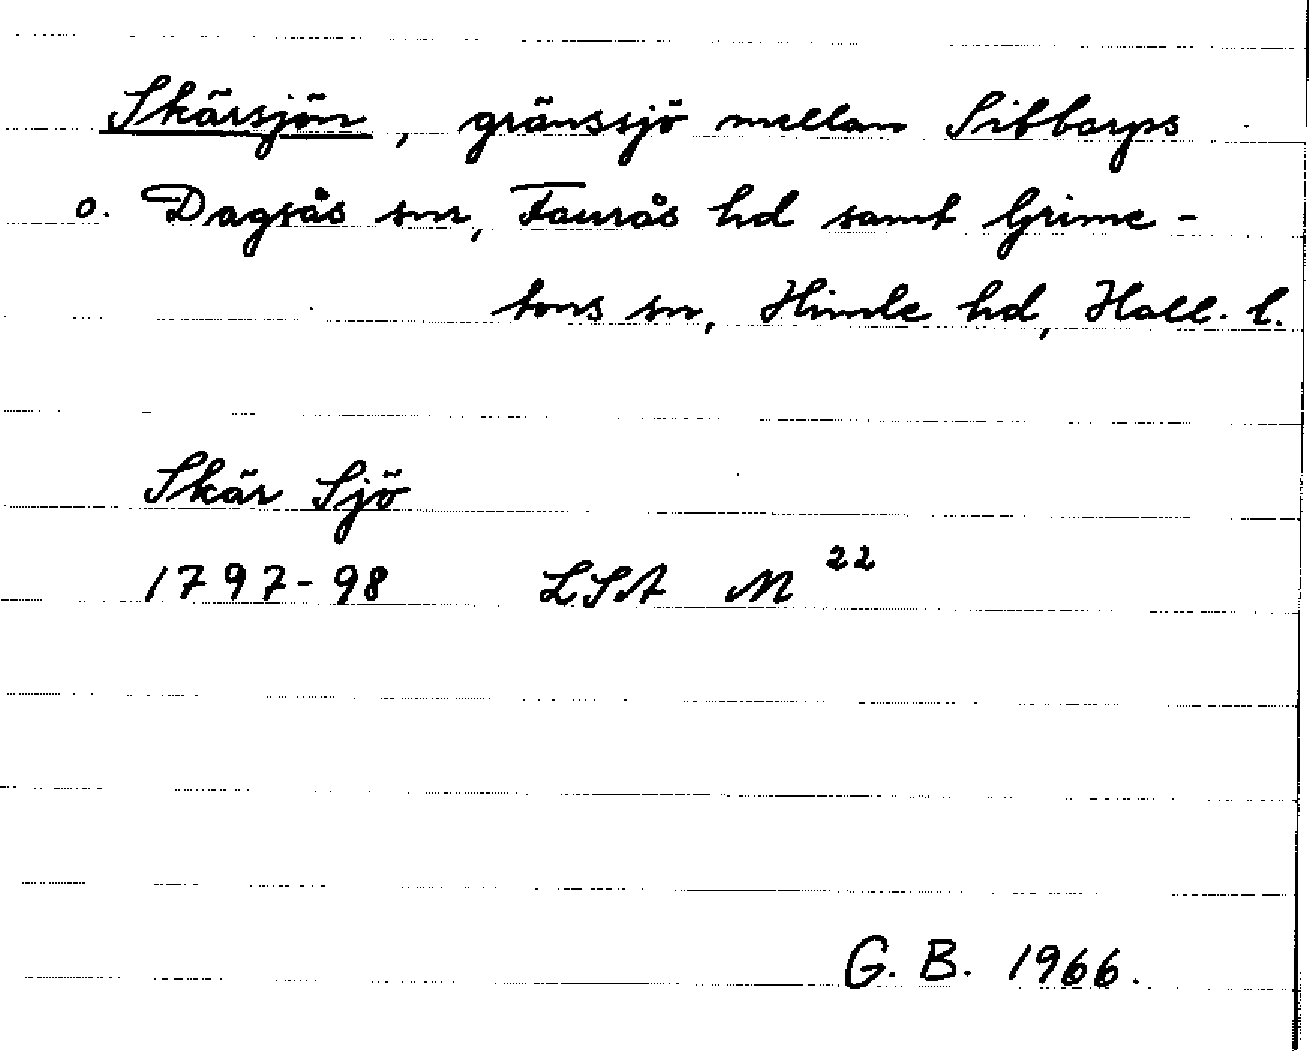 Skärsjön, gränssjö mellan Sibbarps
o. Dagsås snr, Faurås hd samt Grime-
tons sn, Himle hd, Hall. l.
Skär Sjö
1797-98 LSA M 22
G. B. 1966.